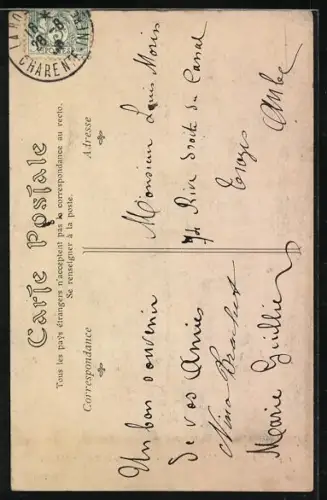 Carte Postale
Tous les pays étrangers n'acceptent pas la correspondance au recto.
Se renseigner à la poste.
Correspondance
Adresse
CHARENTE
Un bon souvenir
de vos amies
Nina
Marie Guillier
Monsieur Louis Morin
74 Rive droite du Canal
Troyes
Aube